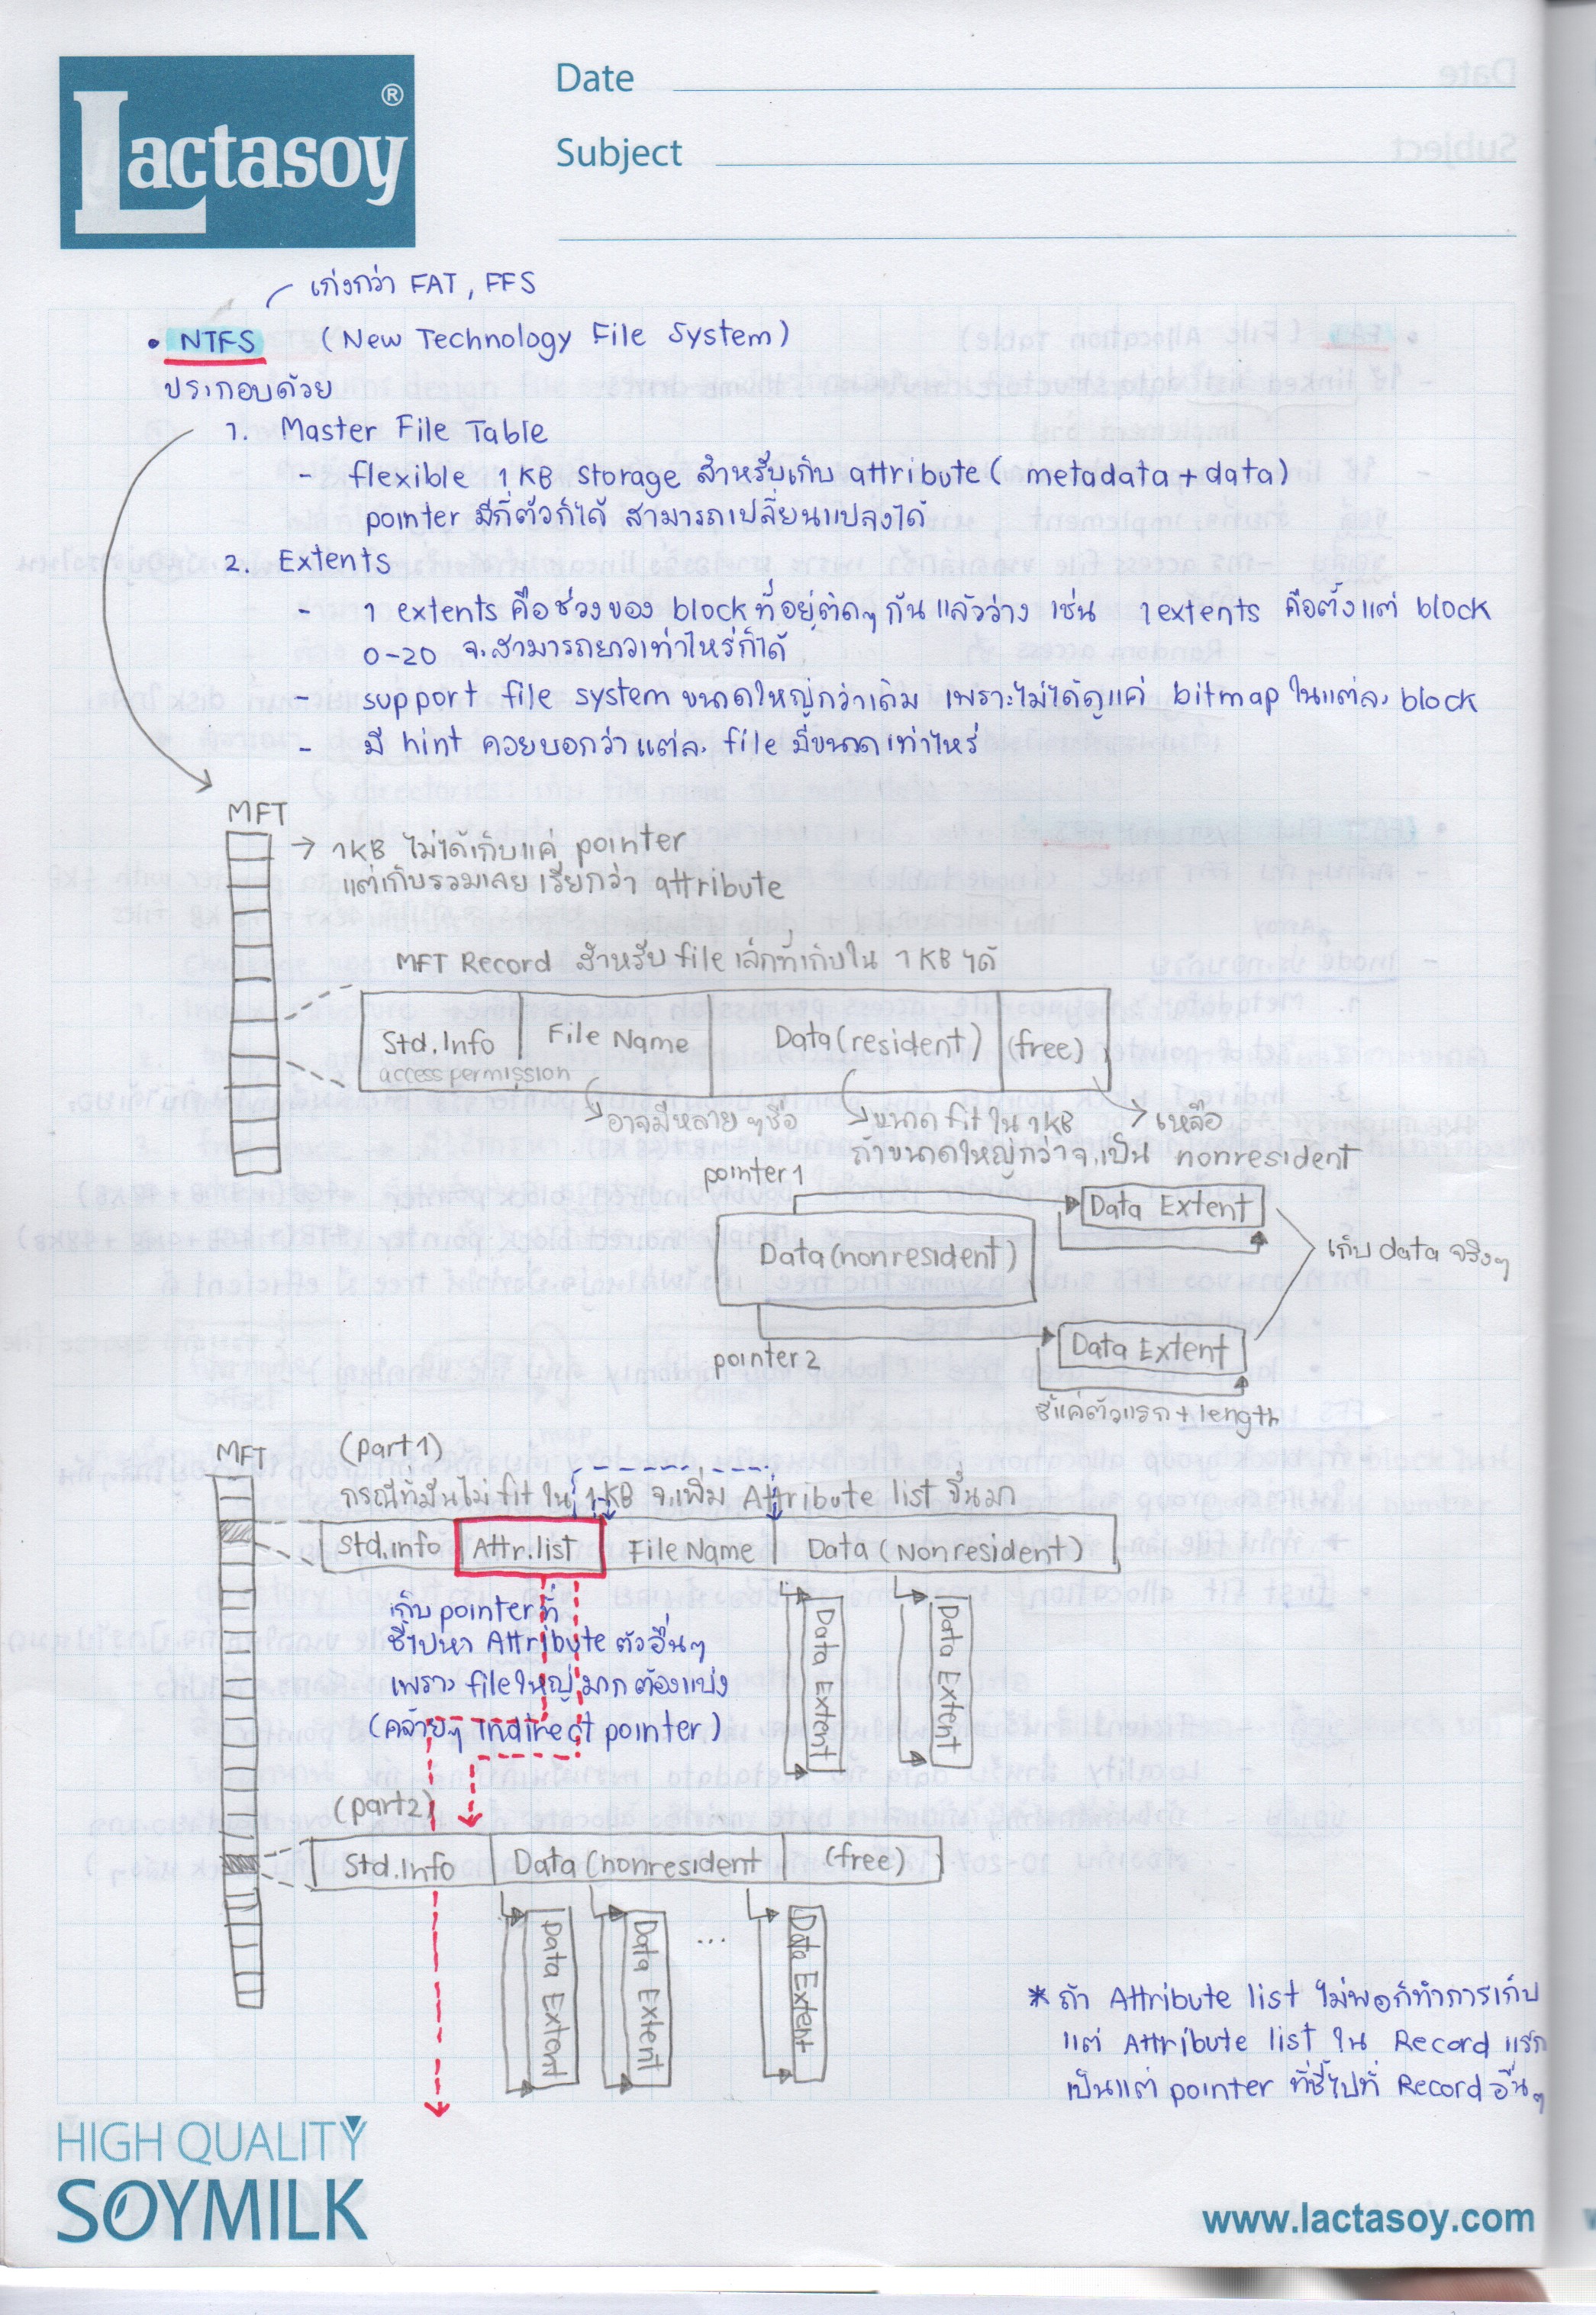 Lactasoy ®
Date
Subject
เก่งกว่า FAT, FFS
• NTFS (New Technology File System)
ประกอบด้วย
1. Master File Table
- flexible 1 KB storage สำหรับเก็บ attribute ( metadata + data)
pointer มีกี่ตัวก็ได้ สามารถเปลี่ยนแปลงได้
2. Extents
- 1 extents คือช่วงของ block ที่อยู่ติดๆกันแล้วว่าง เช่น 1 extents คือตั้งแต่ block
0-20 จะสามารถยาวเท่าไหร่ก็ได้
- support file system ขนาดใหญ่กว่าเดิม เพราะไม่ได้ดูแค่ bitmap ในแต่ละ block
- มี hint คอยบอกว่าแต่ละ file มีขนาดเท่าไหร่
MFT
→ 1KB ไม่ได้เก็บแค่ pointer
แต่เก็บรวมเลย เรียกว่า attribute
MFT Record สำหรับ file เล็กที่เก็บใน 1 KB ได้
Std.Info File Name Data(resident) (free)
access permission
อาจมีหลายๆชื่อ ขนาด fit ใน 1KB เหลือ
ถ้าขนาดใหญ่กว่าจะเป็น nonresident
pointer1
Data Extent
Data(nonresident)
เก็บ data จริงๆ
Data Extent
pointer2
ชี้แค่ตัวแรก + length
MFT
(part1)
กรณีที่มันไม่ fit ใน 1 KB จะเพิ่ม Attribute list ขึ้นมา
Std.info Attr.list File Name Data (Nonresident)
เก็บ pointer ที่
ชี้ไปหา Attribute ตัวอื่นๆ
เพราะ file ใหญ่มาก ต้องแบ่ง
(คล้ายๆ indirect pointer)
Data Extent
Data Extent
(part2)
Std.Info Data (nonresident (free)
Data Extent
Data Extent
...
Data Extent
* ถ้า Attribute list ไม่พอก็ทำการเก็บ
แต่ Attribute list ใน Record แรก
เป็นแต่ pointer ที่ชี้ไปที่ Record อื่นๆ
HIGH QUALITY
SOYMILK
www.lactasoy.com